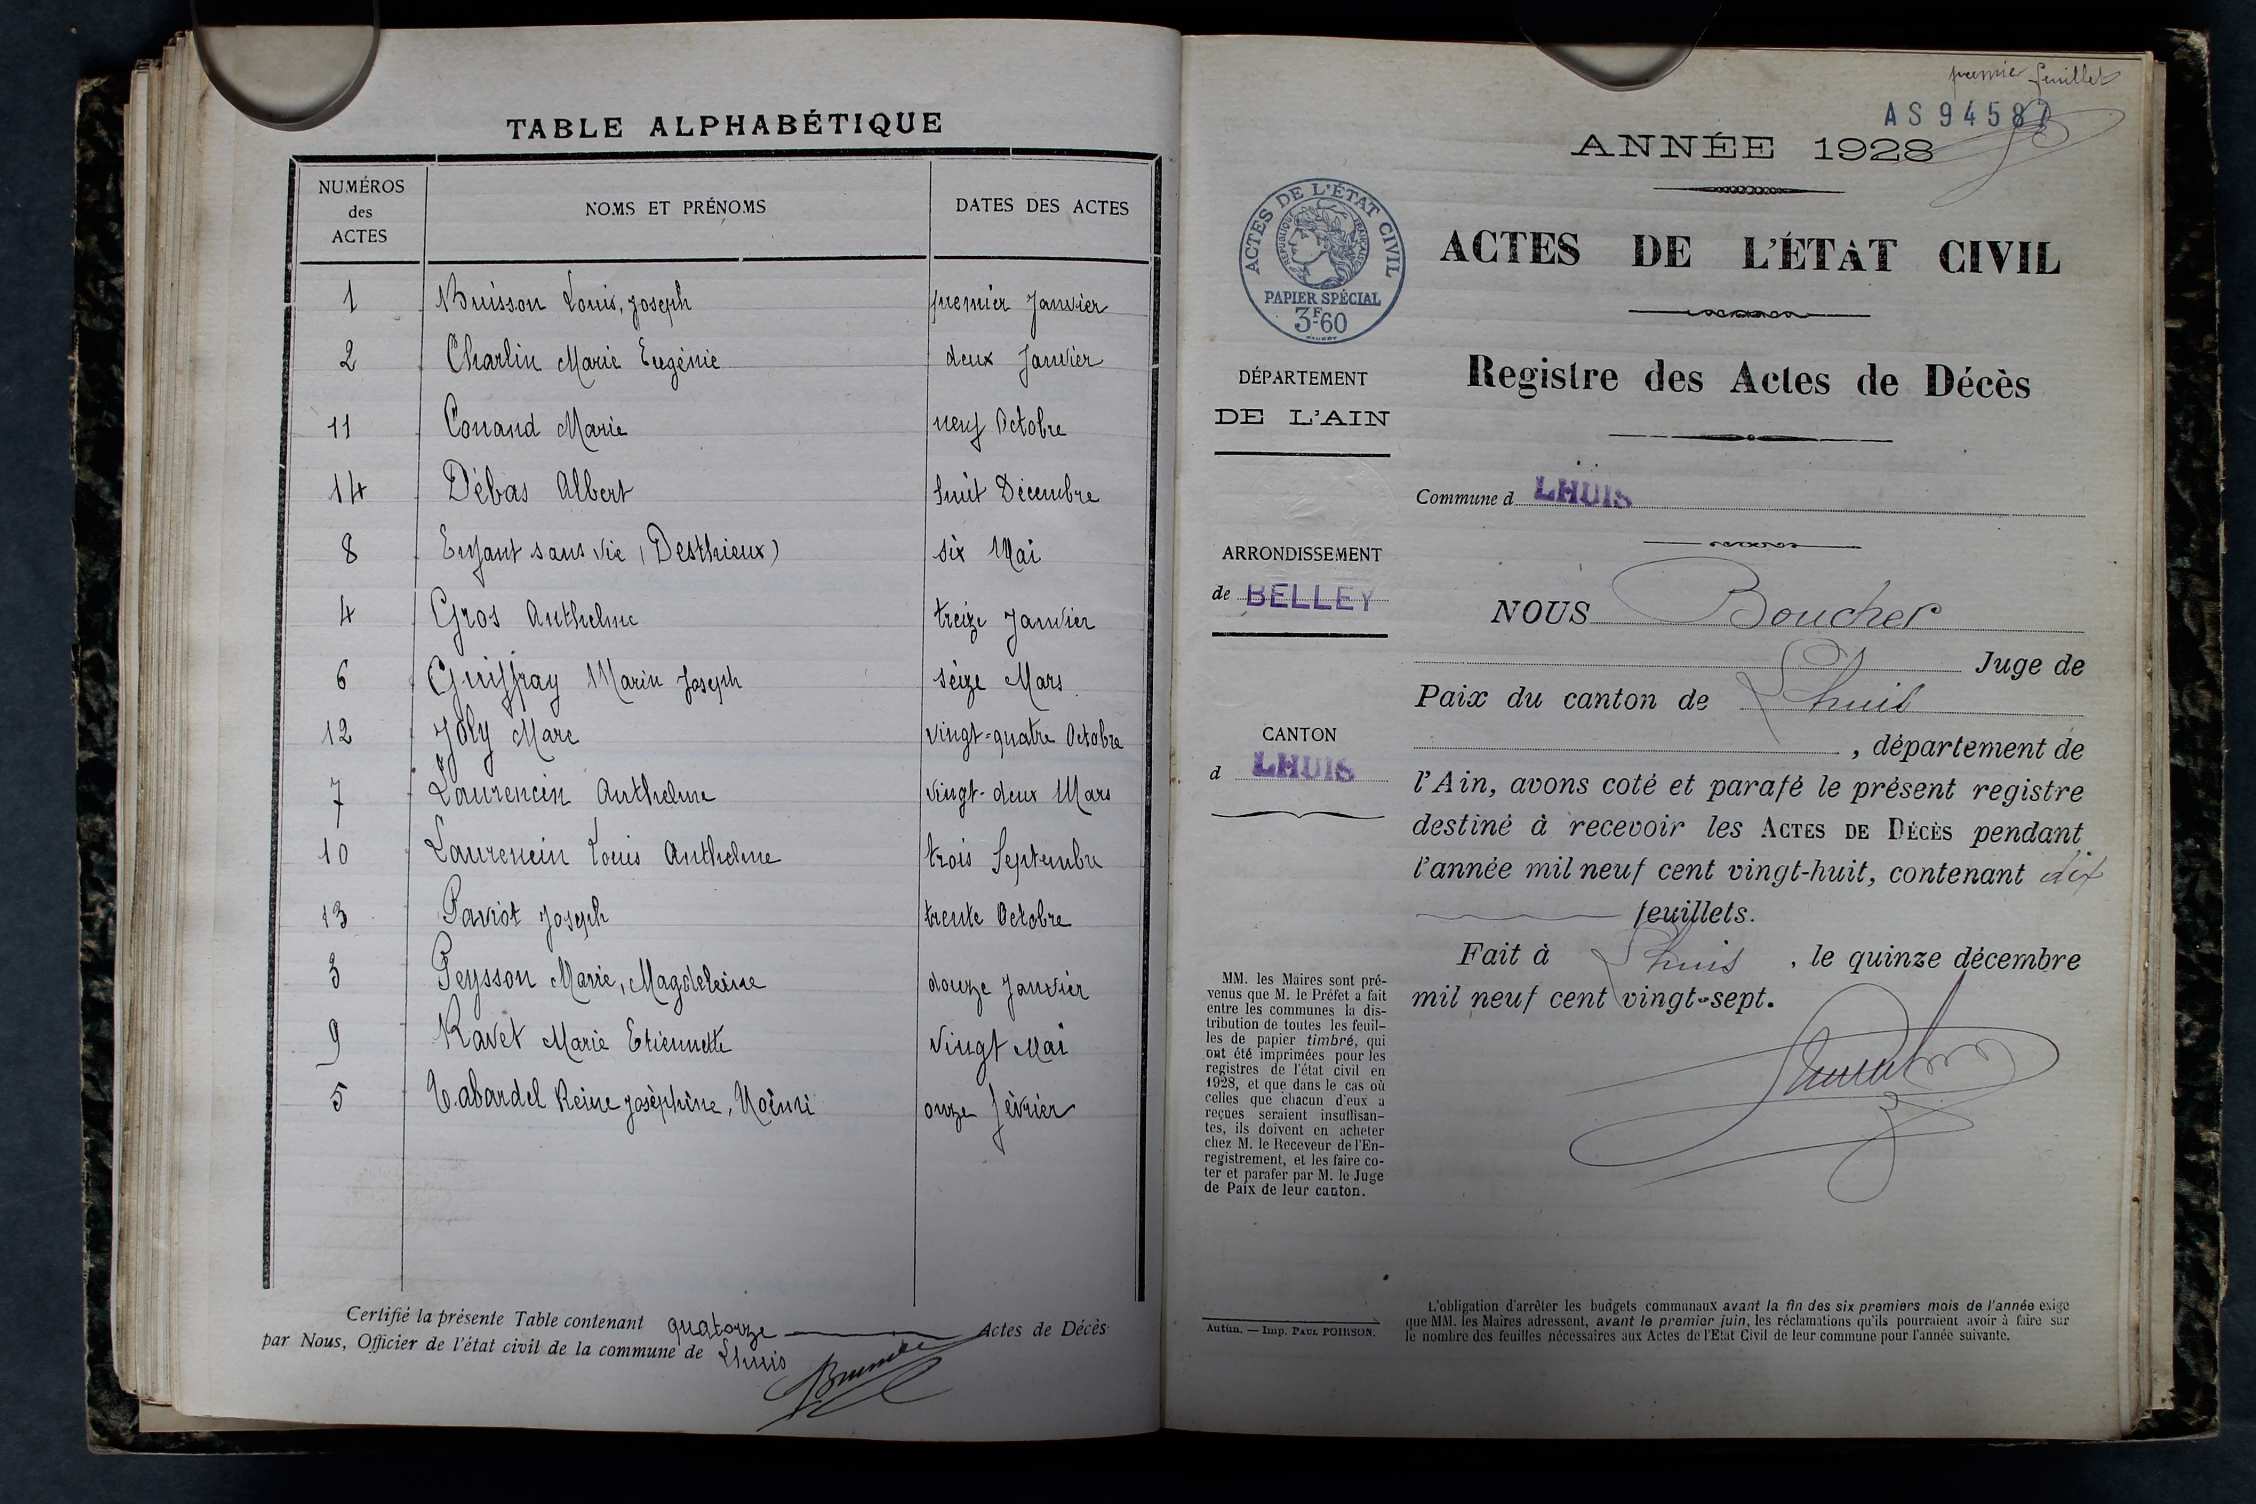 TABLE ALPHABÉTIQUE
NUMÉROS des ACTES NOMS ET PRÉNOMS DATES DES ACTES
1 Buisson Louis, Joseph premier Janvier
2 Charlin Marie Eugénie deux Janvier
11 Conand Marie neuf Octobre
14 Débas Albert huit Décembre
8 Enfant sans vie (Desthieux) six Mai
4 Gros Anthelme treize Janvier
6 Guiffray Marin Joseph seize Mars
12 Joly Marc vingt-quatre Octobre
7 Laurencin Anthelme vingt-deux Mars
10 Laurencin Louis Anthelme trois Septembre
13 Paviot Joseph trente Octobre
3 Peysson Marie, Magdeleine douze Janvier
9 Ravet Marie Etiennette vingt Mai
5 Tabardel Reine Joséphine, Noémi onze février
Certifié la présente Table contenant quatorze Actes de Décès
par Nous, Officier de l'état civil de la commune de Lhuis
premier feuillet
AS 94587
ANNÉE 1928
ACTES DE L'ÉTAT CIVIL
RÉPUBLIQUE FRANÇAISE
PAPIER SPÉCIAL
3F60
ACTES DE L'ÉTAT CIVIL
Registre des Actes de Décès
DÉPARTEMENT
DE L'AIN
Commune d LHUIS
ARRONDISSEMENT
de BELLEY
CANTON
d LHUIS
NOUS Boucher
Juge de
Paix du canton de Lhuis
, département de
l'Ain, avons coté et parafé le présent registre
destiné à recevoir les ACTES DE DÉCÈS pendant
l'année mil neuf cent vingt-huit, contenant dix
feuillets.
Fait à Lhuis , le quinze décembre
mil neuf cent vingt-sept.
MM. les Maires sont pré-
venus que M. le Préfet a fait
entre les communes la dis-
tribution de toutes les feuil-
les de papier timbré, qui
ont été imprimées pour les
registres de l'état civil en
1928, et que dans le cas où
celles que chacun d'eux a
reçues seraient insuffisan-
tes, ils doivent en acheter
chez M. le Receveur de l'En-
registrement, et les faire co-
ter et parafer par M. le Juge
de Paix de leur canton.
Autun. — Imp. PAUL POIRSON.
L'obligation d'arrêter les budgets communaux avant la fin des six premiers mois de l'année exige
que MM. les Maires adressent, avant le premier juin, les réclamations qu'ils pourraient avoir à faire sur
le nombre des feuilles nécessaires aux Actes de l'Etat Civil de leur commune pour l'année suivante.